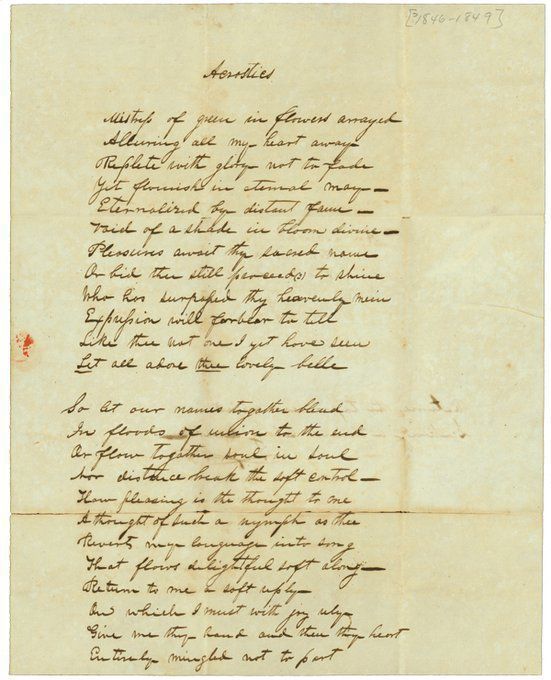 [?1846-1849]
Acrostics
Mistress of green in flowers arrayed
Alluring all my heart away
Replete with glory not to fade
Yet flourish in eternal may—
Eternalized by distant fame—
Void of a shade in bloom divine—
Pleasures await thy sacred name
Or bid thee still proceed(s) to shine
Who has surpassed thy heavenly mein
Expression will forbear to tell
Like thee not one I yet have seen
Let all adore thee lovely belle
So let our names together blend
In floods of union to the end
Or flow together soul in soul
Nor distance break the soft control—
How pleasing is the thought to me
A thought of such a nymph as thee
Reverts my language into song
That flows delightful soft along—
Return to me a soft reply
On which I must with joy rely
Give me thy hand and then thy heart
Entirely mingled not to part